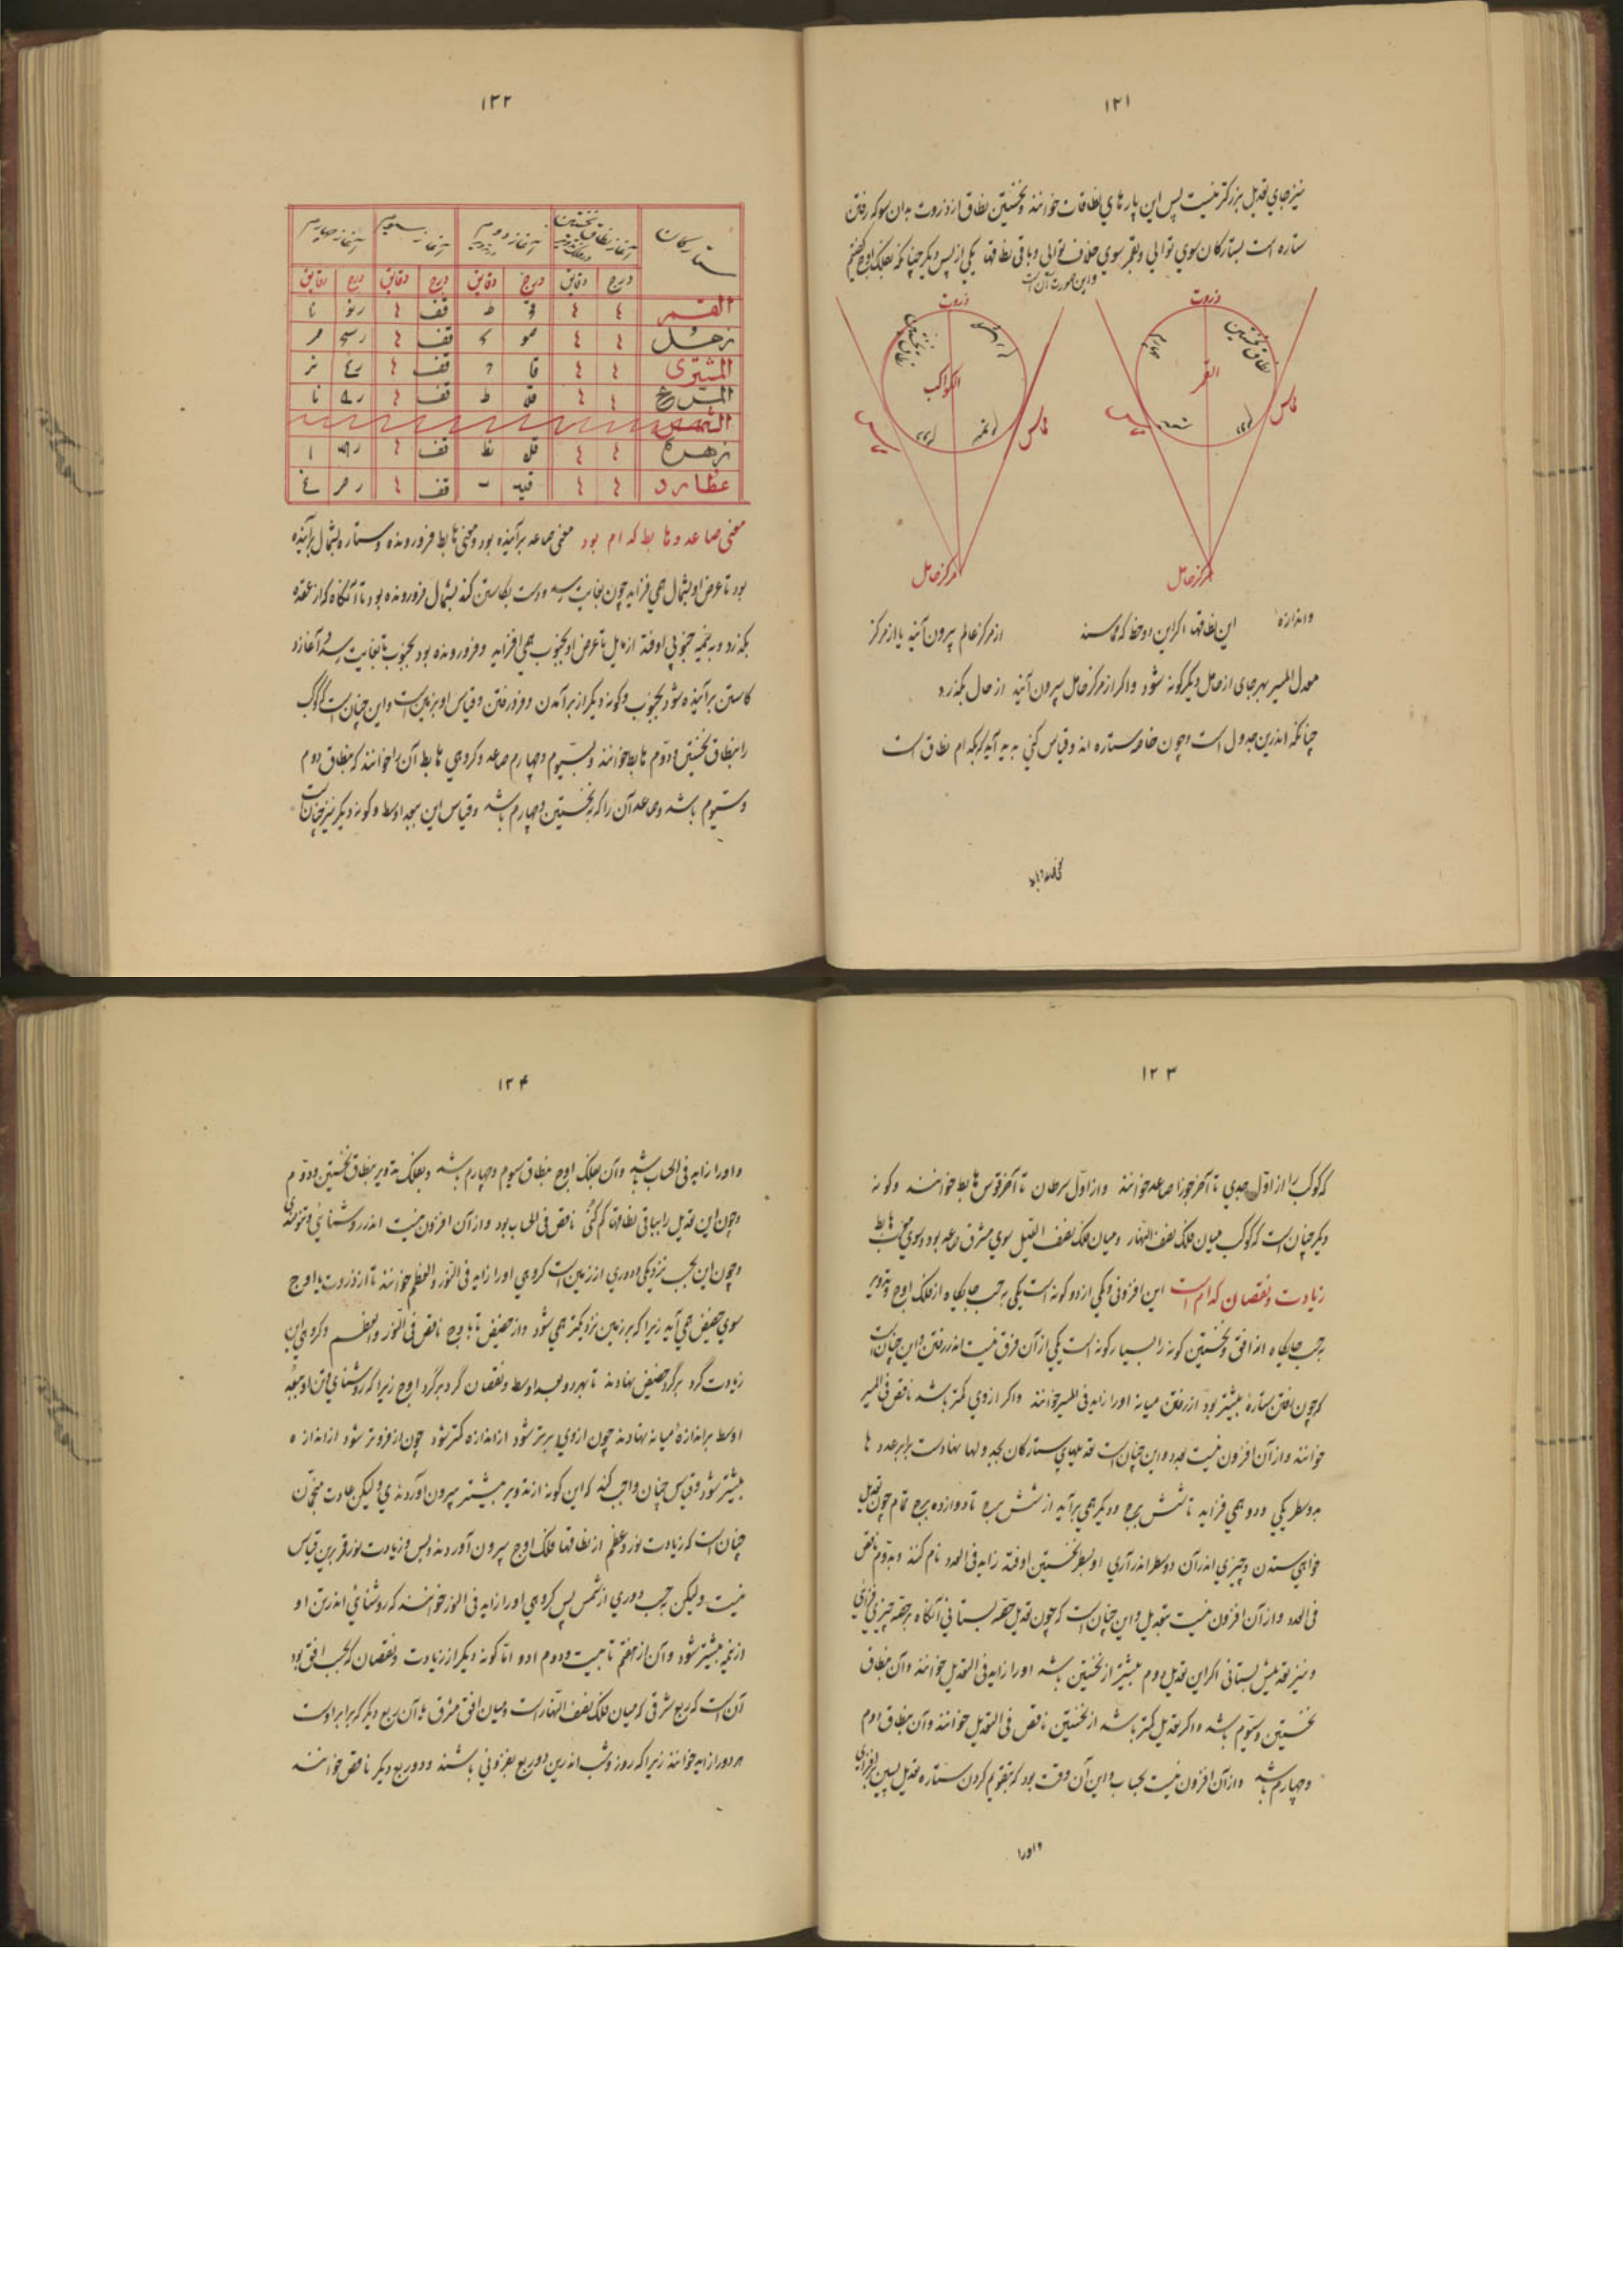 ١٢١
نیز جای تعدیل بزرکتر نیست پس این پارهای نطاقات خوانند و نخستین نطاق از ذروت بدان سو که رفتن
ستاره است بستارکان سوی توالی و بقمر سوی خلاف توالی و باقی نطاقها یکی از پس دیکر چنانکه بفلک اوج کفتیم
و این صورت آن است
ذروت
نطاق نخستین
چهارم
القمر
مماس
مرکز حامل
ذروت
نطاق نخستین
الکواکب
مماس
مرکز حامل
و اندازه این نطاقها اکر این دو خط که مماسند از مرکز عالم بیرون آیند یا از مرکز
معدل المسیر بهر جای از حامل دیکرکونه شود و اکر از مرکز حامل بیرون آیند از حال نکذرد
چنانکه اندرین جدول است و چون خاصه ستاره اندو قیاس کنی پدید آید که بکدام نطاق است
١٢٢
ستارکان
آغاز نطاق نخستین
آغاز دووم
آغاز سیوم
آغاز چهارم
درج دقایق درج دقایق درج دقایق درج دقایق
القمر
زحل
المشتری
المریخ
الشمس
زهره
عطارد
معنی صاعد و هابط کدام بود معنی صاعد برآینده بود و معنی هابط فرورونده و ستاره بشمال برآینده
بود تا عرض او بشمال همی فزاید چون بغایت رسد و دست بکاستن کند بشمال فرورونده بود تا آنکاه که از عقده
بکذرد و به نیمه جنوبی اوفتد از مایل تا عرض او بجنوب همی افزاید و فرورونده بود بجنوب تا بغایت رسد و آغازد
کاستن برآینده شود بجنوب و کونه دیکر از برآمدن و فرو رفتن و قیاس او بزمین است و این چنان است که کوکب
را بنطاق نخستین و دوم هابط خوانند و بسیوم و چهارم صاعد و کروهی هابط آن را خوانند که بنطاق دوم
و سیوم باشد و صاعد آن را که بنخستین و چهارم باشد و قیاس این ببعد اوسط و کونه دیکر نیز چنان است
١٢٣
که کوکب را از اول جدی تا آخر جوزا صاعد خوانند و از اول سرطان تا آخر قوس هابط خوانند و کونه
دیکر چنان است که کوکب میان فلک نصف النهار و میان فلک نصف اللیل سوی مشرق صاعد بود و سوی مغرب هابط
زیادت و نقصان کدام است این افزونی و کمی از دو کونه است یکی بر حسب جایکاه از فلک اوج و تدویر
بر حسب جایکاه از افق و نخستین کونه را بسیار کونه است یکی از آن فرق نیست اندر رفتن و این چنان است
که چون رفتن ستاره بیشتر بود از رفتن میانه او را زاید فی المسیر خوانند و اکر از وی کمتر باشد ناقص فی المسیر
خوانند و از آن افزون نیست بعدد و این چنان است تعدیلهای ستارکان بجدولها نهادست برابر عددها
بدو سطر یکی ودو همی فزاید تا شش برج و دیکر همی برآید از شش برج تا دوازده برج تمام چون تعدیل
خواهی ستدن و چیزی اندر آن دو سطر اندر آری او بسطر نخستین اوفتد زاید فی العدد نام کنند و بدوم ناقص
فی العدد و از آن افزون نیست بتعدیل و این چنان است که چون تعدیل حصه بستانی آنکاه بر حصه چیزی فزای
و نیز تعدیلش بستانی اکر این تعدیل دوم بیشتر از نخستین باشد او را زاید فی التعدیل خوانند و آن بنطاق
نخستین و سیوم باشد و اکر تعدیل کمتر باشد از نخستین ناقص فی التعدیل خوانند و آن بنطاق دوم
و چهارم باشد و از آن افزون نیست بحساب و این آن وقت بود که بتقویم کردن ستاره تعدیل پسین افزای
و او را
١٢۴
و او را زاید فی الحساب باشد و آن بفلک اوج بنطاق سیوم و چهارم باشد و بفلک تدویر بنطاق نخستین و دوم
و چون این تعدیل را بباقی نطاقها کم کنی ناقص فی الحساب بود و از آن افزون نیست اندر روشنائی و تنومندی
و چون این بحسب نزدیکی و دوری از زمین است کروهی او را زاید فی النور و العظم خوانند تا از ذروت یا اوج
سوی حضیض همی آید زیرا که بر زمین نزدیکتر همی شود و از حضیض تا باوج ناقص فی النور و العظم و کروهی این
زیادت کرد بر کرد حضیض نهادند تا بهر دو بعد اوسط و نقصان کرد بر کرد اوج زیرا که روشنائی و تن او ببعد
اوسط بر اندازه میانه نهادند چون از وی برتر شود از اندازه کمتر شود چون از فروتر شود از اندازه
بیشتر شود و قیاس چنان واجب کند که این کونه از تدویر بیشتر بیرون آوردندی ولیکن عادت منجمان
چنان است که زیادت نور و عظم از نطاقها فلک اوج بیرون آوردند و بس و زیادت نور قمر برین قیاس
نیست ولیکن بر حسب دوری از شمس پس کروهی او را زاید فی النور خوانند که روشنائی اندر تن او
از نیمه بیشتر شود و آن از هفتم تا بیست و دوم او و اما کونه دیکر از زیادت و نقصان که بحسب افق بود
آن است که ربع شرقی که میان فلک نصف النهار است و میان افق مشرق با آن ربع دیکر که برابر اوست
هر دو را زاید خوانند زیرا که روز و شب اندرین دو ربع بفزونی باشند و دو ربع دیکر ناقص خوانند